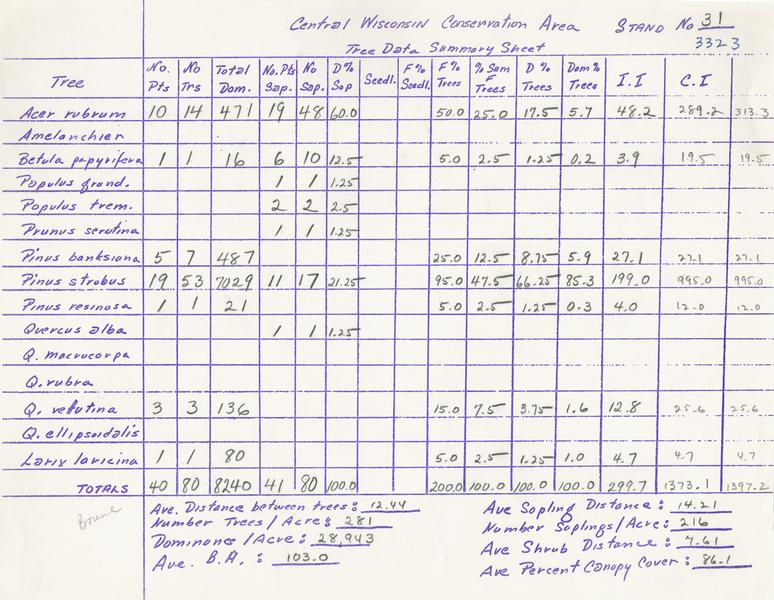 Central Wisconsin Conservation Area STAND No 31
3323
Tree Data Summary Sheet
Tree No. Pts No Trs Total Dom. No. Pts Sap. No Sap. D% Sap Seedl. F% Seedl. F% Trees % Sum F Trees D% Trees Dom% Trees I.I C.I
Acer rubrum 10 14 471 19 48 60.0 50.0 25.0 17.5 5.7 48.2 289.2 313.3
Amelanchier
Betula papyrifera 1 1 16 6 10 12.5 5.0 2.5 1.25 0.2 3.9 19.5 19.5
Populus grand. 1 1 1.25
Populus trem. 2 2 2.5
Prunus serotina 1 1 1.25
Pinus banksiana 5 7 487 25.0 12.5 8.75 5.9 27.1 27.1 27.1
Pinus strobus 19 53 7029 11 17 21.25 95.0 47.5 66.25 85.3 199.0 995.0 995.0
Pinus resinosa 1 1 21 5.0 2.5 1.25 0.3 4.0 12.0 12.0
Quercus alba 1 1 1.25
Q. macrocarpa
Q. rubra
Q. velutina 3 3 136 15.0 7.5 3.75 1.6 12.8 25.6 25.6
Q. ellipsoidalis
Larix laricina 1 1 80 5.0 2.5 1.25 1.0 4.7 4.7 4.7
TOTALS 40 80 8240 41 80 100.0 200.0 100.0 100.0 100.0 299.7 1373.1 1397.2
Ave. Distance between trees: 12.44
Number Trees/Acre: 281
Dominance/Acre: 28,943
Ave. B.A.: 103.0
Ave Sapling Distance: 14.21
Number Saplings/Acre: 216
Ave Shrub Distance: 7.61
Ave Percent Canopy Cover: 86.1